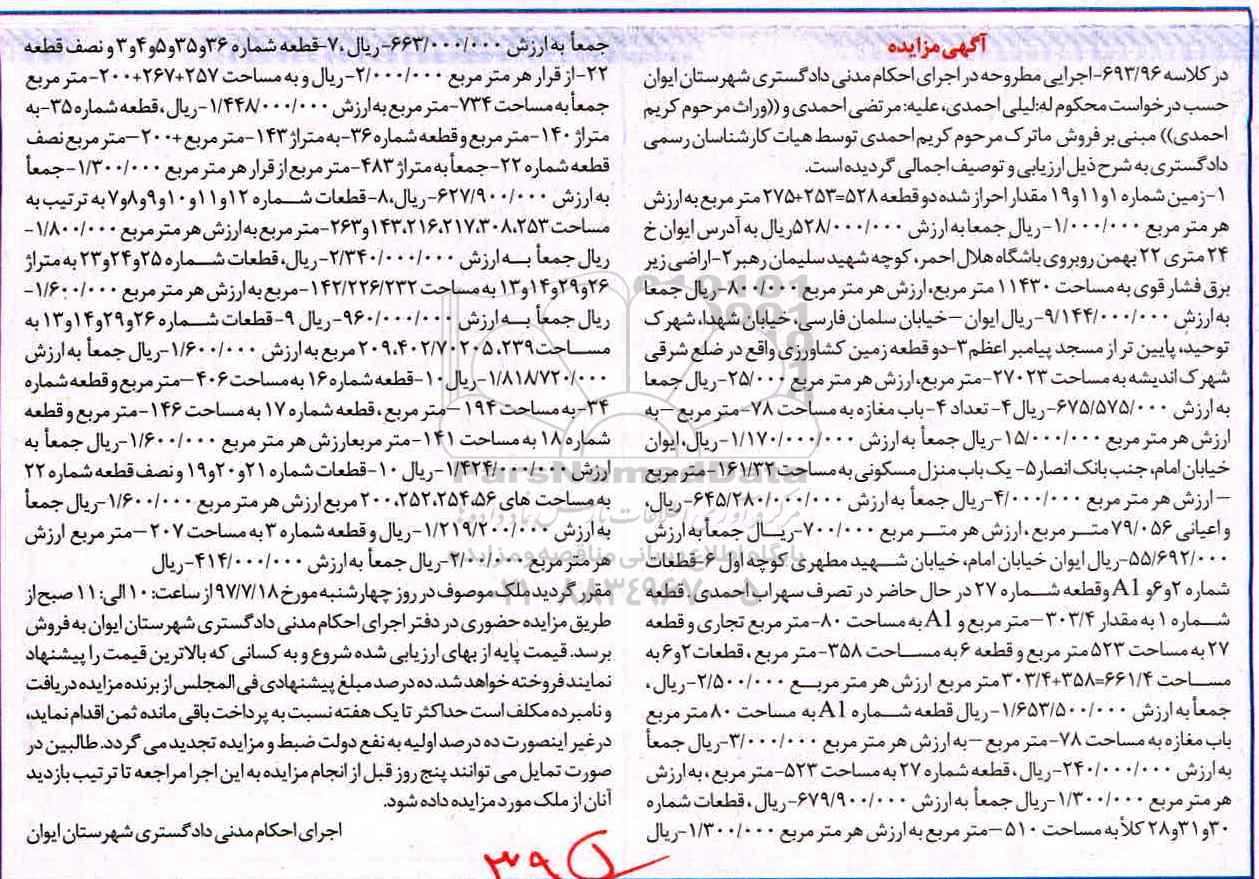 آگهی مزایده
در کلاسه ۶۹۳/۹۶-اجرایی مطروحه در اجرای احکام مدنی دادگستری شهرستان ایوان
حسب درخواست محکوم له:لیلی احمدی، علیه: مرتضی احمدی و ((وراث مرحوم کریم
احمدی)) مبنی بر فروش ماترک مرحوم کریم احمدی توسط هیات کارشناسان رسمی
دادگستری به شرح ذیل ارزیابی و توصیف اجمالی گردیده است.
۱-زمین شماره ۱و۱۱و۱۹ مقدار احراز شده دو قطعه ۵۲۸=۲۵۳+۲۷۵ متر مربع به ارزش
هر متر مربع ۱/۰۰۰/۰۰۰-ریال جمعا به ارزش ۵۲۸/۰۰۰/۰۰۰ریال به آدرس ایوان خ
۲۴ متری ۲۲ بهمن روبروی باشگاه هلال احمر، کوچه شهید سلیمان رهبر ۲-اراضی زیر
برق فشار قوی به مساحت ۱۱۴۳۰ متر مربع، ارزش هر متر مربع ۸۰۰/۰۰۰-ریال جمعا
به ارزش ۹/۱۴۴/۰۰۰/۰۰۰-ریال ایوان –خیابان سلمان فارسی، خیابان شهدا، شهرک
توحید، پایین تر از مسجد پیامبر اعظم ۳-دو قطعه زمین کشاورزی واقع در ضلع شرقی
شهرک اندیشه به مساحت ۲۷۰۲۳-متر مربع، ارزش هر متر مربع ۲۵/۰۰۰-ریال جمعا
به ارزش ۶۷۵/۵۷۵/۰۰۰-ریال ۴- تعداد ۴-باب مغازه به مساحت ۷۸-متر مربع –به
ارزش هر متر مربع ۱۵/۰۰۰/۰۰۰-ریال جمعاً به ارزش ۱/۱۷۰/۰۰۰/۰۰۰-ریال، ایوان
خیابان امام، جنب بانک انصار ۵- یک باب منزل مسکونی به مساحت ۱۶۱/۳۲-متر مربع
– ارزش هر متر مربع ۴/۰۰۰/۰۰۰-ریال جمعاً به ارزش ۶۴۵/۲۸۰/۰۰۰/۰۰۰-ریال،
و اعیانی ۷۹/۰۵۶ متر مربع ، ارزش هر متر مربع ۷۰۰/۰۰۰-ریال جمعاً به ارزش
۵۵/۶۹۲/۰۰۰-ریال ایوان خیابان امام، خیابان شهید مطهری کوچه اول ۶-قطعات
شماره ۲و۶و A1 وقطعه شماره ۲۷ در حال حاضر در تصرف سهراب احمدی. قطعه
شماره ۱ به مقدار ۳۰۳/۴–متر مربع و A1 به مساحت ۸۰-متر مربع تجاری و قطعه
۲۷ به مساحت ۵۲۳ متر مربع و قطعه ۶ به مساحت ۳۵۸-متر مربع ، قطعات ۲و۶ به
مساحت ۶۶۱/۴=۳۵۸+۳۰۳/۴ متر مربع ارزش هر متر مربع ۲/۵۰۰/۰۰۰-ریال ،
جمعاً به ارزش ۱/۶۵۳/۵۰۰/۰۰۰-ریال قطعه شماره A1 به مساحت ۸۰ متر مربع
باب مغازه به مساحت ۷۸-متر مربع –به ارزش هر متر مربع ۳/۰۰۰/۰۰۰-ریال جمعاً
به ارزش ۲۴۰/۰۰۰/۰۰۰-ریال ، قطعه شماره ۲۷ به مساحت ۵۲۳-متر مربع ، به ارزش
هر متر مربع ۱/۳۰۰/۰۰۰-ریال جمعاً به ارزش ۶۷۹/۹۰۰/۰۰۰-ریال ، قطعات شماره
۳۰و۳۱و۲۸ کلاً به مساحت ۵۱۰–متر مربع به ارزش هر متر مربع ۱/۳۰۰/۰۰۰-ریال
جمعاً به ارزش ۶۶۳/۰۰۰/۰۰۰-ریال ،۷-قطعه شماره ۳۶و۳۵و۵و۴و۳ و نصف قطعه
۲۲-از قرار هر متر مربع ۲/۰۰۰/۰۰۰-ریال و به مساحت ۲۵۷+۲۶۷+۲۰۰-متر مربع
جمعاً به مساحت ۷۳۴-متر مربع به ارزش ۱/۴۴۸/۰۰۰/۰۰۰-ریال ، قطعه شماره ۳۵-به
متراژ ۱۴۰-متر مربع و قطعه شماره ۳۶-به متراژ ۱۴۳-متر مربع +۲۰۰–متر مربع نصف
قطعه شماره ۲۲-جمعاً به متراژ ۴۸۳-متر مربع از قرار هر متر مربع ۱/۳۰۰/۰۰۰-جمعاً
به ارزش ۶۲۷/۹۰۰/۰۰۰-ریال، ۸-قطعات شماره ۱۲و۱۱و۱۰و۹و۸و۷ به ترتیب به
مساحت ۱۴۳،۲۱۶،۲۱۷،۳۰۸،۲۵۳و۲۶۳-متر مربع به ارزش هر متر مربع ۱/۸۰۰/۰۰۰-
ریال جمعاً به ارزش ۲/۳۴۰/۰۰۰/۰۰۰-ریال، قطعات شماره ۲۵و۲۴و۲۳ به متراژ
۲۶و۲۹و۱۴و۱۳ به مساحت ۱۴۲/۲۲۶/۲۳۲-مربع به ارزش هر متر مربع ۱/۶۰۰/۰۰۰-
ریال جمعاً به ارزش ۹۶۰/۰۰۰/۰۰۰-ریال ۹-قطعات شماره ۲۶و۲۹و۱۴و۱۳ به
مساحت ۲۰۹،۴۰۲/۷۰۲۰۵،۲۳۹ مربع به ارزش ۱/۶۰۰/۰۰۰-ریال جمعاً به ارزش
۱/۸۱۸/۷۲۰/۰۰۰-ریال ۱۰-قطعه شماره ۱۶ به مساحت ۴۰۶–متر مربع و قطعه شماره
۳۴-به مساحت ۱۹۴–متر مربع ، قطعه شماره ۱۷ به مساحت ۱۴۶-متر مربع و قطعه
شماره ۱۸ به مساحت ۱۴۱-متر مربعارزش هر متر مربع ۱/۶۰۰/۰۰۰-ریال جمعاً به
ارزش ۱/۴۲۴/۰۰۰/۰۰۰-ریال ۱۰-قطعات شماره ۲۱و۲۰و۱۹ و نصف قطعه شماره ۲۲
به مساحت های ۲۰۰،۲۵۲،۲۵۴،۵۶ مربع ارزش هر متر مربع ۱/۶۰۰/۰۰۰-ریال جمعاً
به ارزش ۱/۲۱۹/۲۰۰/۰۰۰-ریال و قطعه شماره ۳ به مساحت ۲۰۷-متر مربع ارزش
هر متر مربع ۲/۰۰/۰۰۰-ریال جمعاً به ارزش ۴۱۴/۰۰۰/۰۰۰-ریال
مقرر گردید ملک موصوف در روز چهارشنبه مورخ ۹۷/۷/۱۸ از ساعت: ۱۰ الی: ۱۱ صبح از
طریق مزایده حضوری در دفتر اجرای احکام مدنی دادگستری شهرستان ایوان به فروش
برسد. قیمت پایه از بهای ارزیابی شده شروع و به کسانی که بالاترین قیمت را پیشنهاد
نمایند فروخته خواهد شد. ده درصد مبلغ پیشنهادی فی المجلس از برنده مزایده دریافت
و نامبرده مکلف است حداکثر تا یک هفته نسبت به پرداخت باقی مانده ثمن اقدام نماید،
در غیر اینصورت ده درصد اولیه به نفع دولت ضبط و مزایده تجدید می گردد. طالبین در
صورت تمایل می توانند پنج روز قبل از انجام مزایده به این اجرا مراجعه تا ترتیب بازدید
آنان از ملک مورد مزایده داده شود.
اجرای احکام مدنی دادگستری شهرستان ایوان
ParsNamadData
پایگاه اطلاع رسانی مناقصه و مزایده
۰۲۱-۸۸۳۴۹۶۷۰-۵
۳۹